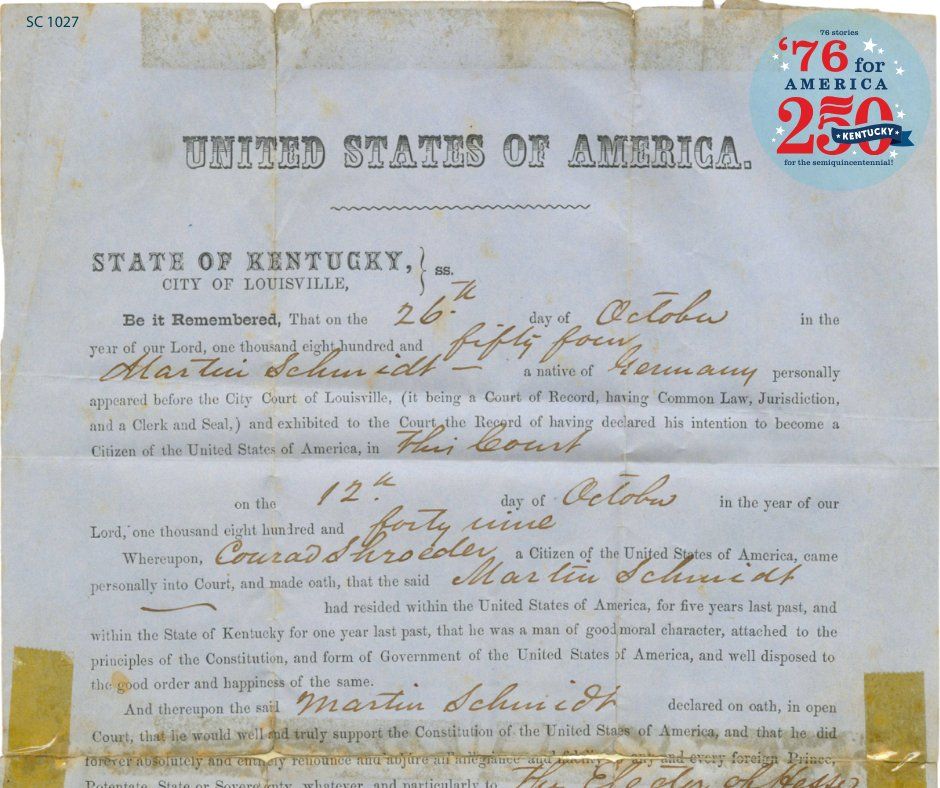 SC 1027
76 stories
'76 for
AMERICA
250
KENTUCKY
for the semiquincentennial!
UNITED STATES OF AMERICA.
STATE OF KENTUCKY, } ss.
CITY OF LOUISVILLE,
Be it Remembered, That on the 26.th day of October in the
year of our Lord, one thousand eight hundred and fifty four
Martin Schmidt — a native of Germany personally
appeared before the City Court of Louisville, (it being a Court of Record, having Common Law, Jurisdiction,
and a Clerk and Seal,) and exhibited to the Court the Record of having declared his intention to become a
Citizen of the United States of America, in this Court
on the 12.th day of October in the year of our
Lord, one thousand eight hundred and forty nine
Whereupon, Conrad Shroeder a Citizen of the United States of America, came
personally into Court, and made oath, that the said Martin Schmidt
had resided within the United States of America, for five years last past, and
within the State of Kentucky for one year last past, that he was a man of good moral character, attached to the
principles of the Constitution, and form of Government of the United States of America, and well disposed to
the good order and happiness of the same.
And thereupon the said Martin Schmidt declared on oath, in open
Court, that he would well and truly support the Constitution of the United States of America, and that he did
forever absolutely and entirely renounce and abjure all allegiance and fidelity to any and every foreign Prince,
Potentate, State or Sovereignty, whatever, and particularly to The Elector of Hesse